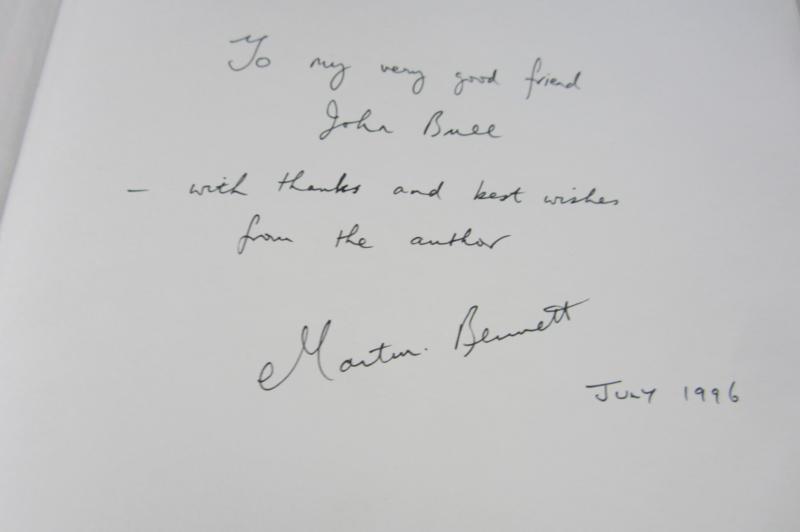 To my very good friend
John Bull
- with thanks and best wishes
from the author
Martin Bennett
July 1996